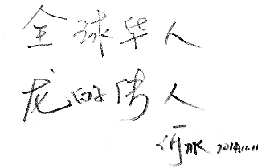 全球华人
龙的传人
何冰 2014.10.11